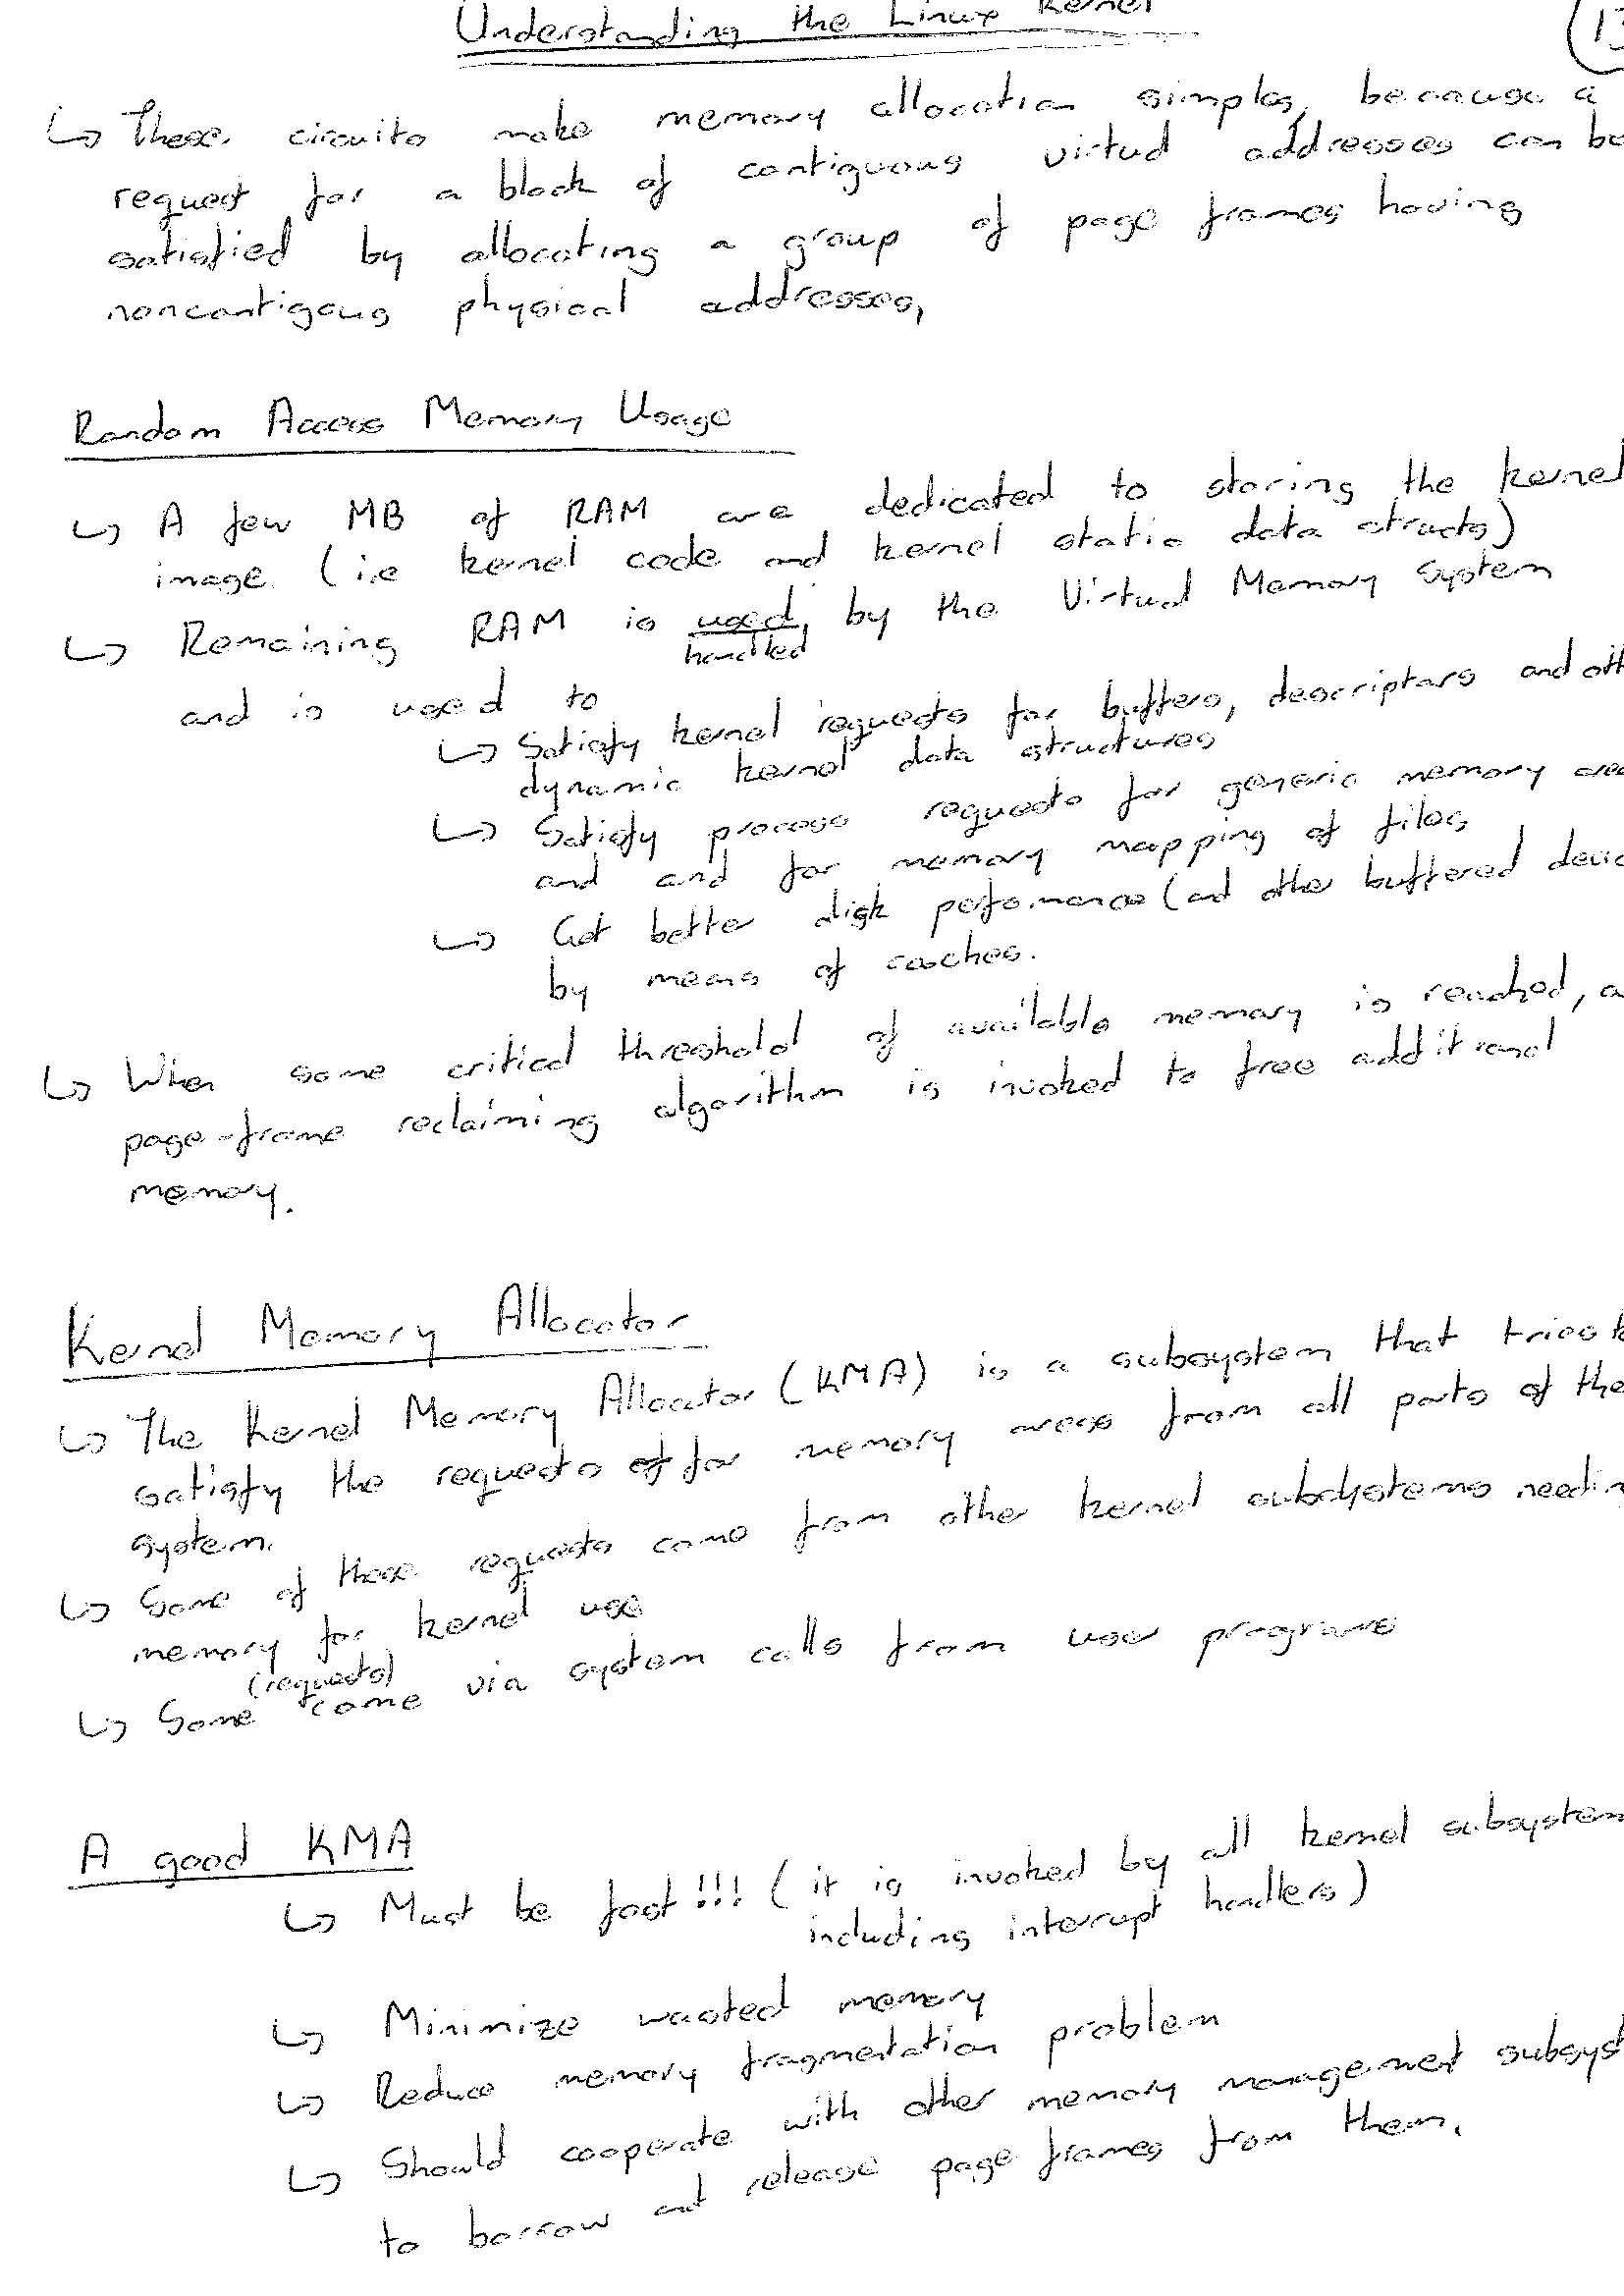 Understanding the Linux Kernel
13
↳ These circuits make memory allocation simpler, because a
request for a block of contiguous virtual addresses can be
satisfied by allocating a group of page frames having
noncontigous physical addresses,
Random Access Memory Usage
↳ A few MB of RAM are dedicated to storing the kernel
image (i.e kernel code and kernel static data structs)
↳ Remaining RAM is used, by the Virtual Memory System
handled
and is used to
↳ Satisfy kernel requests for buffers, descriptors and oth
dynamic kernel data structures
↳ Satisfy process requests for generic memory area
and and for memory mapping of files
↳ Get better disk performance (and other buffered devic
by means of caches.
↳ When some critical threshold of available memory is reached, a
page-frame reclaiming algorithm is invoked to free additional
memory.
Kernel Memory Allocator
↳ The Kernel Memory Allocator (KMA) is a subsystem that tries t
satisfy the requests of for memory areas from all parts of the
system.
↳ Some of these requests come from other kernel subsystems needin
memory for kernel use
(requests)
↳ Some come via system calls from user programs
A good KMA
↳ Must be fast!!! (it is invoked by all kernel subsystem
including interrupt handlers)
↳ Minimize wasted memory
↳ Reduce memory fragmentation problem
↳ Should cooperate with other memory management subsyst
to borrow and release page frames from them.